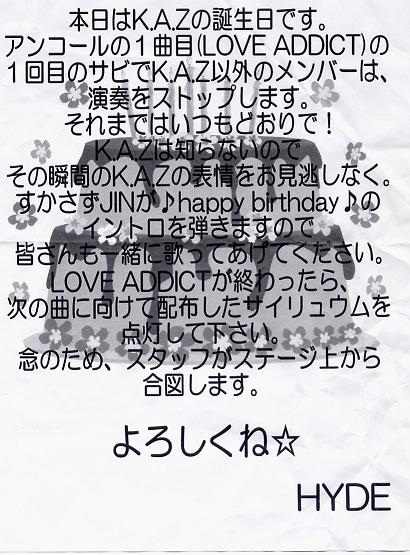 本日はK.A.Zの誕生日です。
アンコールの1曲目(LOVE ADDICT)の
1回目のサビでK.A.Z以外のメンバーは、
演奏をストップします。
それまではいつもどおりで!
K.A.Zは知らないので
その瞬間のK.A.Zの表情をお見逃しなく。
すかさずJINが♪happy birthday♪の
イントロを弾きますので
皆さんも一緒に歌ってあげてください。
LOVE ADDICTが終わったら、
次の曲に向けて配布したサイリュウムを
点灯して下さい。
念のため、スタッフがステージ上から
合図します。
よろしくね☆
HYDE